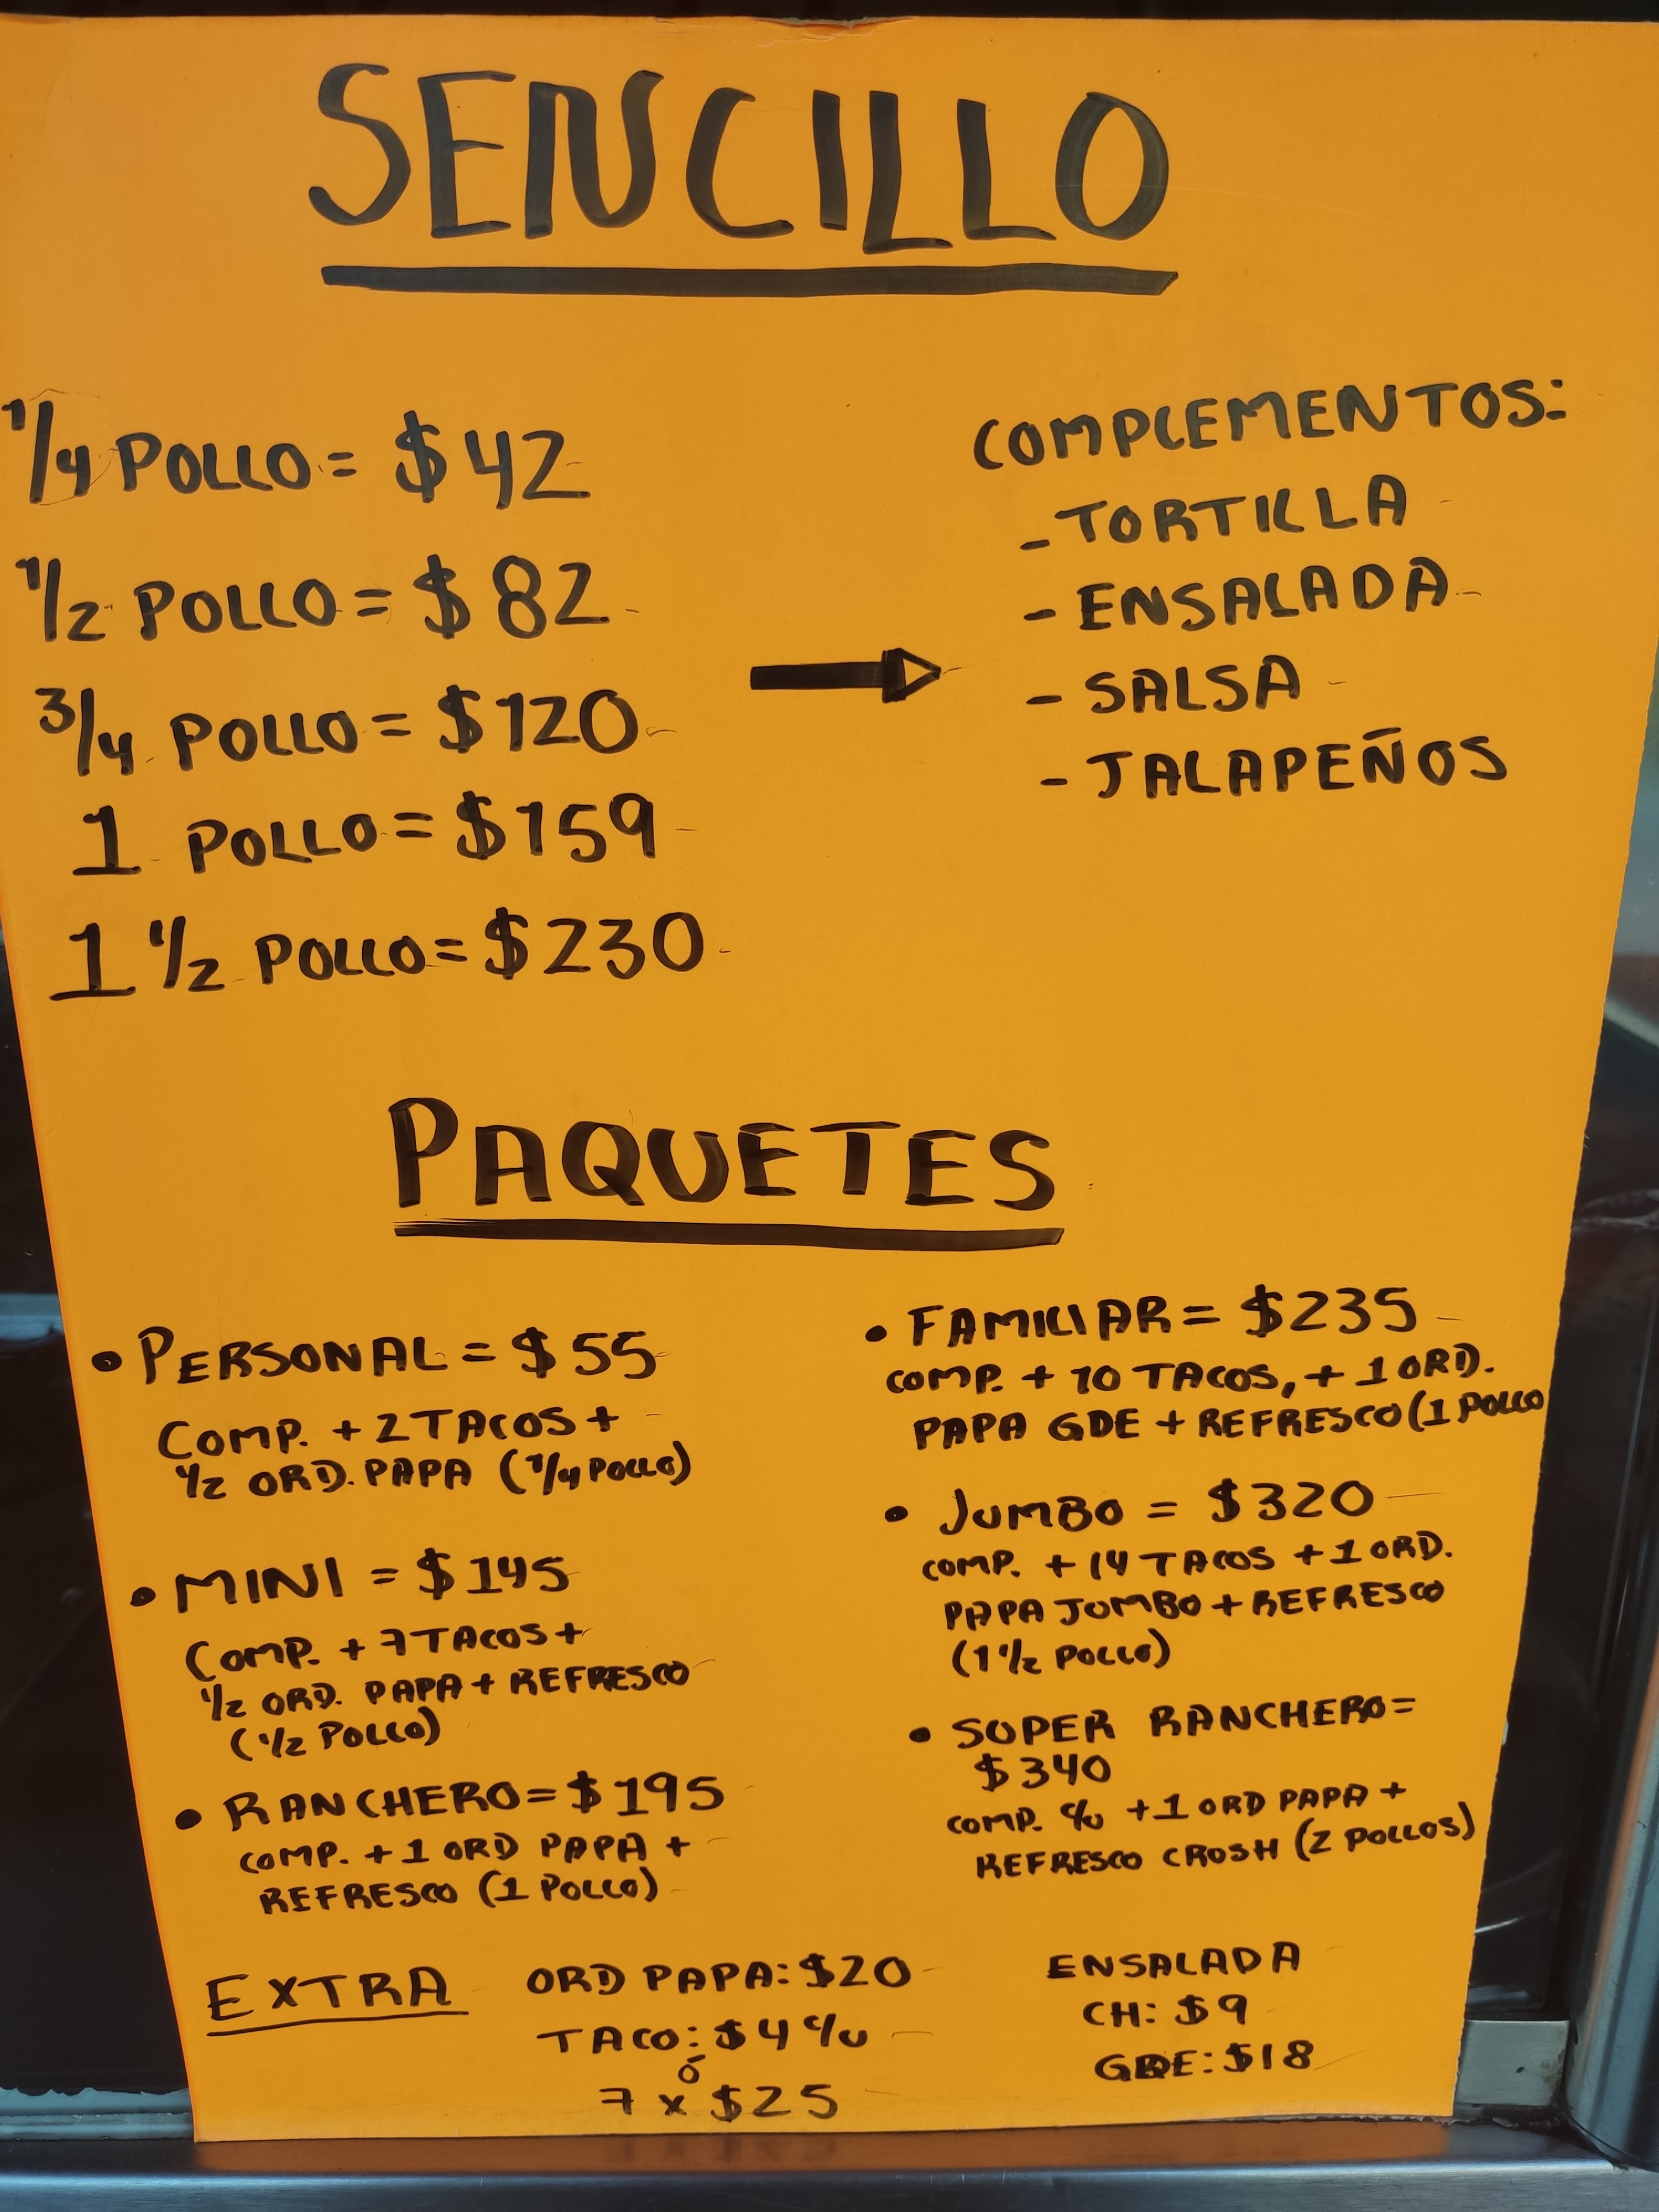 SENCILLO
1/4 POLLO = $42
1/2 POLLO = $82
3/4 POLLO = $120
1 POLLO = $159
1 1/2 POLLO = $230
COMPLEMENTOS:
- TORTILLA
- ENSALADA
- SALSA
- JALAPEÑOS
PAQUETES
• PERSONAL = $55
COMP. + 2 TACOS +
1/2 ORD. PAPA (1/4 POLLO)
• MINI = $145
COMP. + 7 TACOS +
1/2 ORD. PAPA + REFRESCO
(1/2 POLLO)
• RANCHERO = $195
COMP. + 1 ORD PAPA +
REFRESCO (1 POLLO)
• FAMILIAR = $235
COMP. + 10 TACOS, + 1 ORD.
PAPA GDE + REFRESCO (1 POLLO
• JUMBO = $320
COMP. + 14 TACOS + 1 ORD.
PAPA JUMBO + REFRESCO
(1 1/2 POLLO)
• SUPER RANCHERO =
$340
COMP. c/u + 1 ORD PAPA +
REFRESCO CROSH (2 POLLOS)
EXTRA
ORD PAPA: $20
TACO: $4 c/u
ó
7 x $25
ENSALADA
CH: $9
GDE: $18